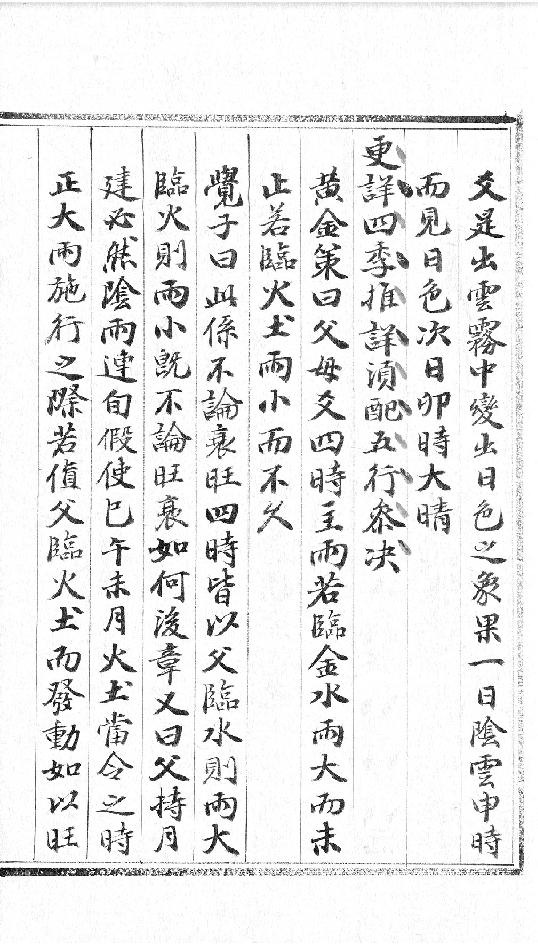 爻是出雲霧中變出日色之象果一日陰雲申時
而見日色次日卯時大晴
更詳四季推詳湏配五行叅决
黄金策曰父母爻四時主雨若臨金水雨大而未
止若臨火土雨小而不久
覺子曰此係不論衰旺四時皆以父臨水則雨大
臨火則雨小既不論旺衰如何後章又曰父持月
建必然陰雨連旬假使巳午未月火土當令之時
正大雨施行之際若值父臨火土而發動如以旺